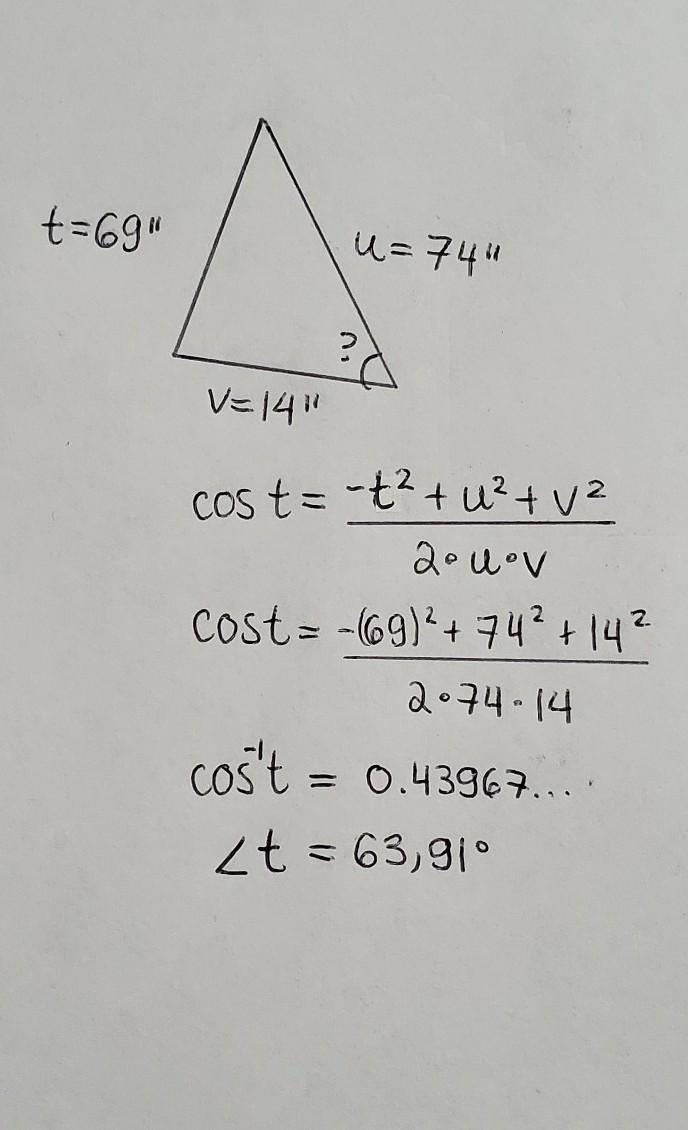 t=69"
u=74"
?
v=14"
cos t = -t² + u² + v² / 2•u•v
cos t = -(69)² + 74² + 14² / 2•74•14
cos⁻¹t = 0.43967...
∠t = 63,91°